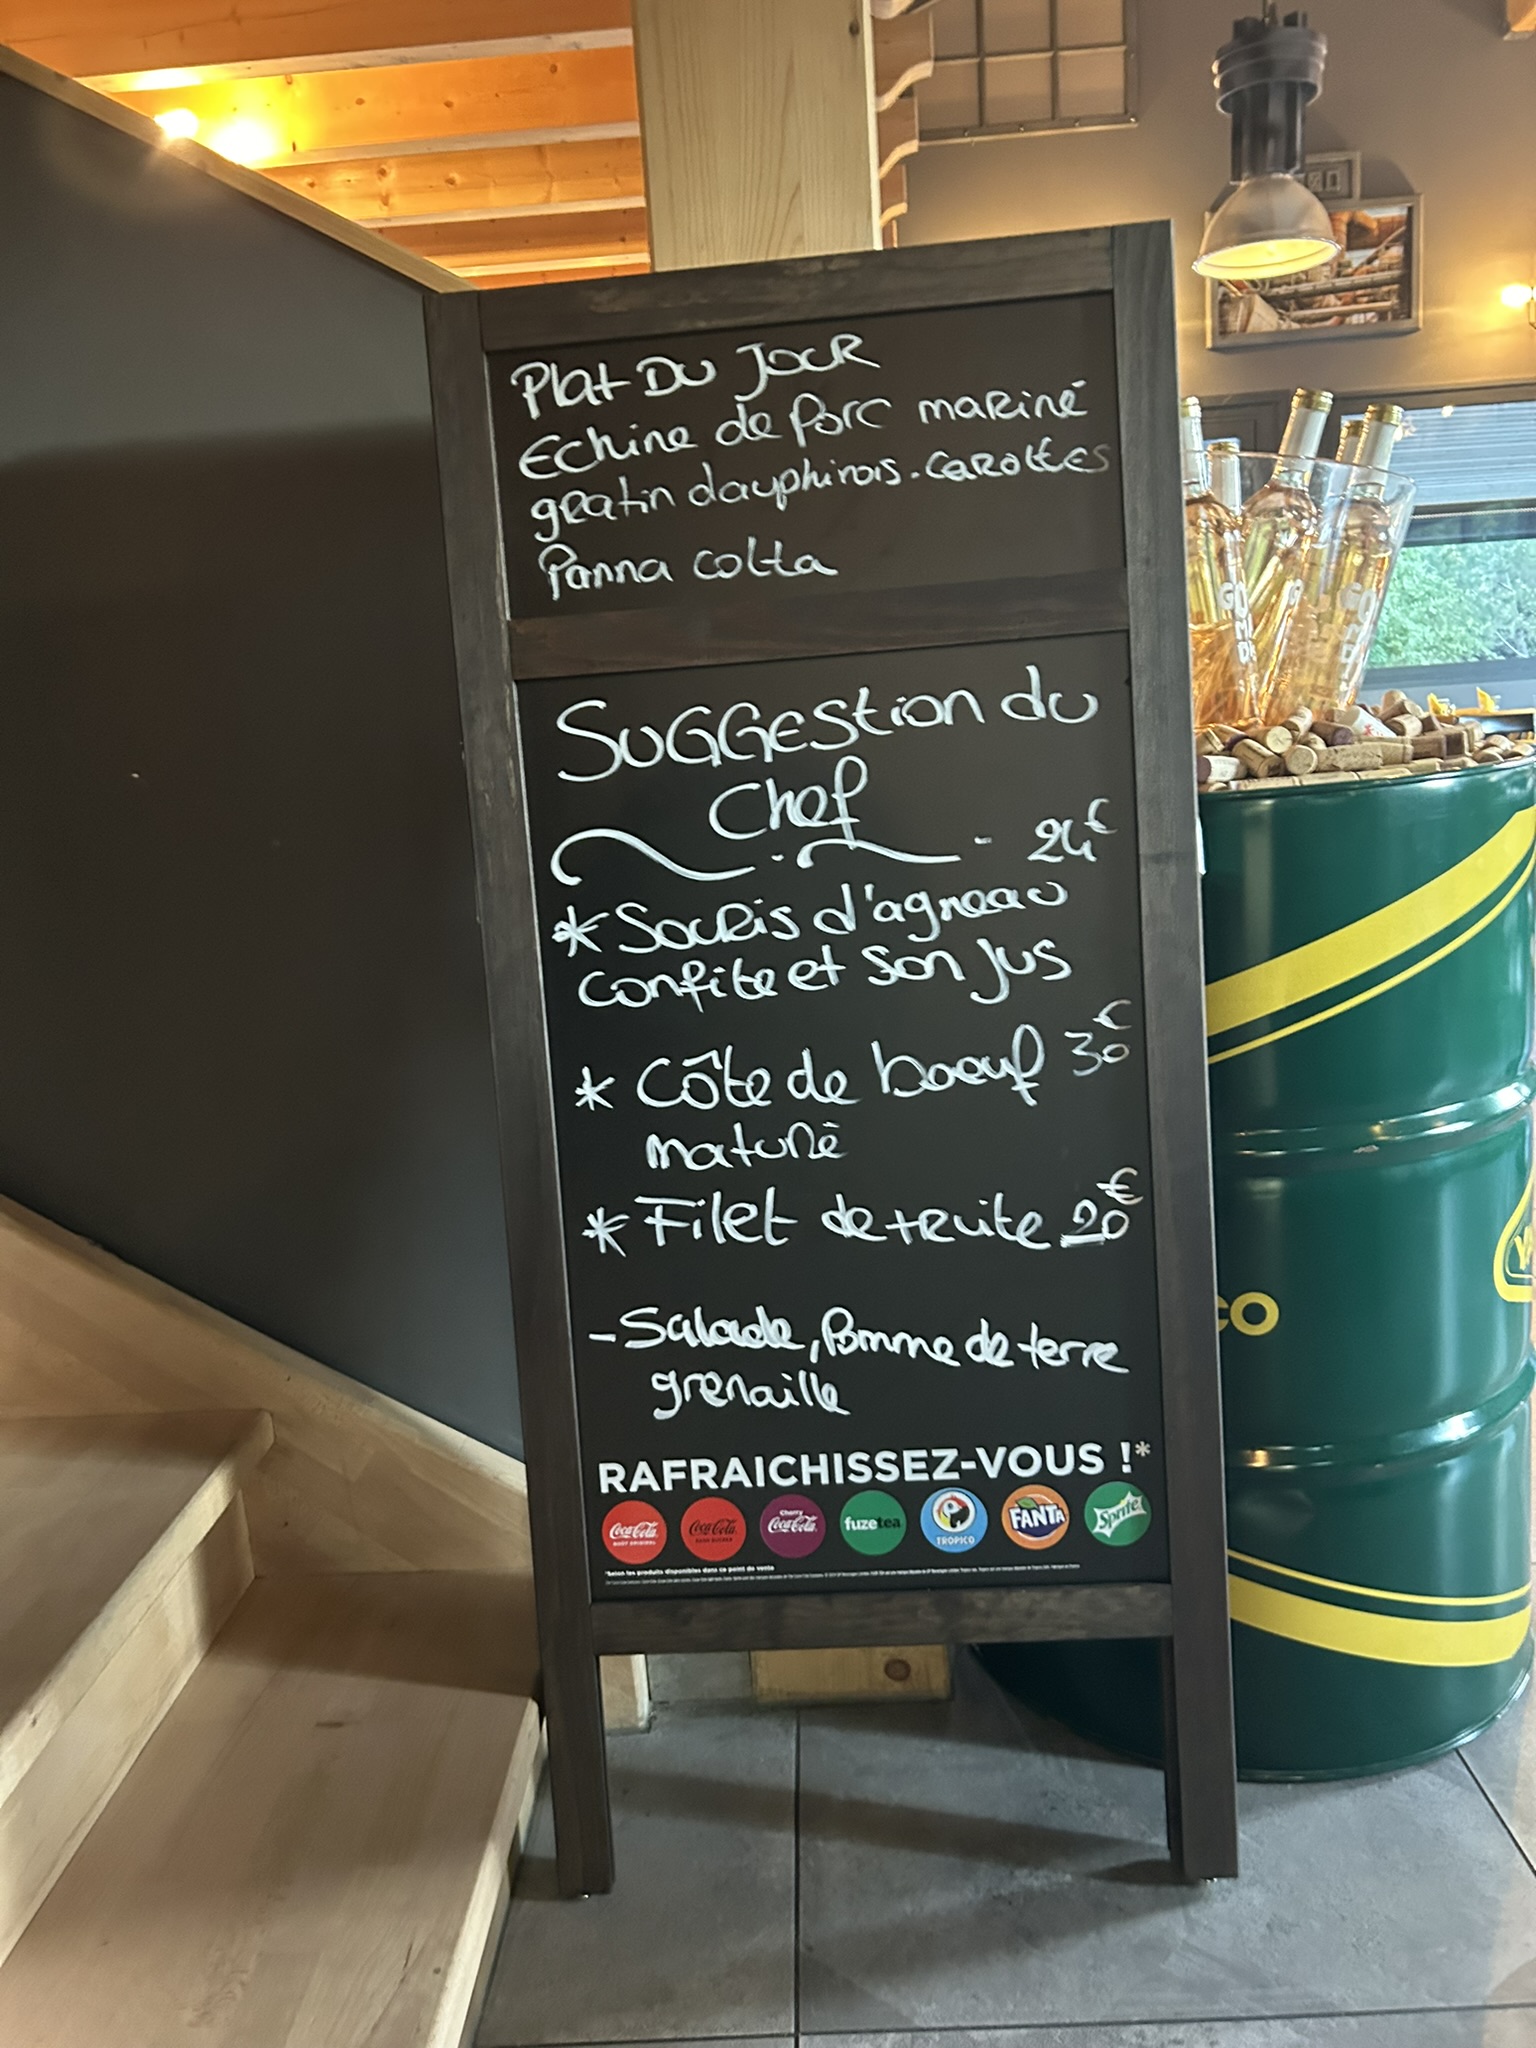 Plat Du Jour
Echine de Porc mariné
gratin dauphinois. carottes
Panna cotta
Suggestion du
Chef
24€
* Souris d'agneau
confite et son jus
* Côte de boeuf 30€
maturé
* Filet de truite 20€
- Salade, Pomme de terre
grenaille
RAFRAICHISSEZ-VOUS !*
Coca-Cola Coca-Cola Cherry Coca-Cola fuzetea TROPICO FANTA Sprite
*Selon les produits disponibles dans ce point de vente
CO